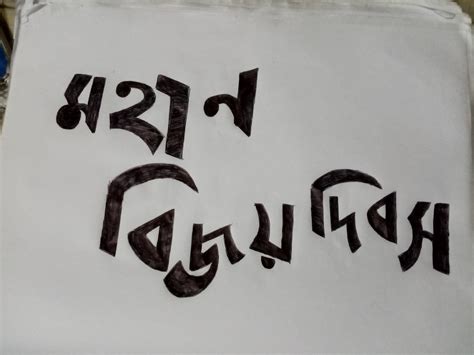 মহান
বিজয় দিবস